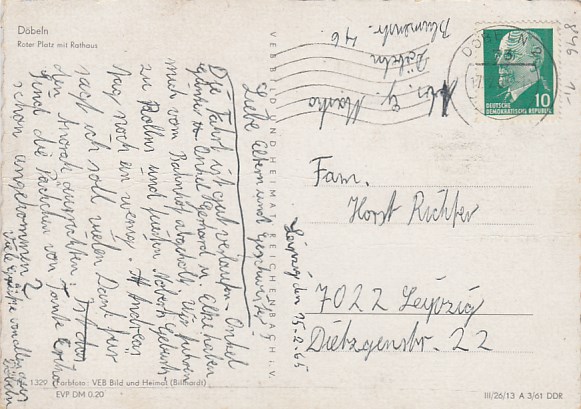 Döbeln
Roter Platz mit Rathaus
VEB BILD UND HEIMAT REICHENBACH I. V.
Döbeln
Blumenstr. 46
DEUTSCHE
DEMOKRATISCHE REPUBLIK
10
Leipzig den 15.2.65
Liebe Eltern und Geschwister
Die Fahrt ist gut verlaufen. Onkel
Onkel Gerhard u. Elke haben
mich vom Bahnhof abgeholt. Wir fuhren
zu und feierten Geburts-
tag noch ein wenig. Andreas
sagt ich soll vielen Dank für
den ausrichten.
Sind die Päckchen von Tante Erika
schon angekommen?
Viele Grüße von allen aus
Döbeln
Fam.
Horst Richter
7022 Leipzig
Dietzgenstr. 22
1329 Farbfoto: VEB Bild und Heimat (Billhardt)
EVP DM 0.20
III/26/13 A 3/61 DDR